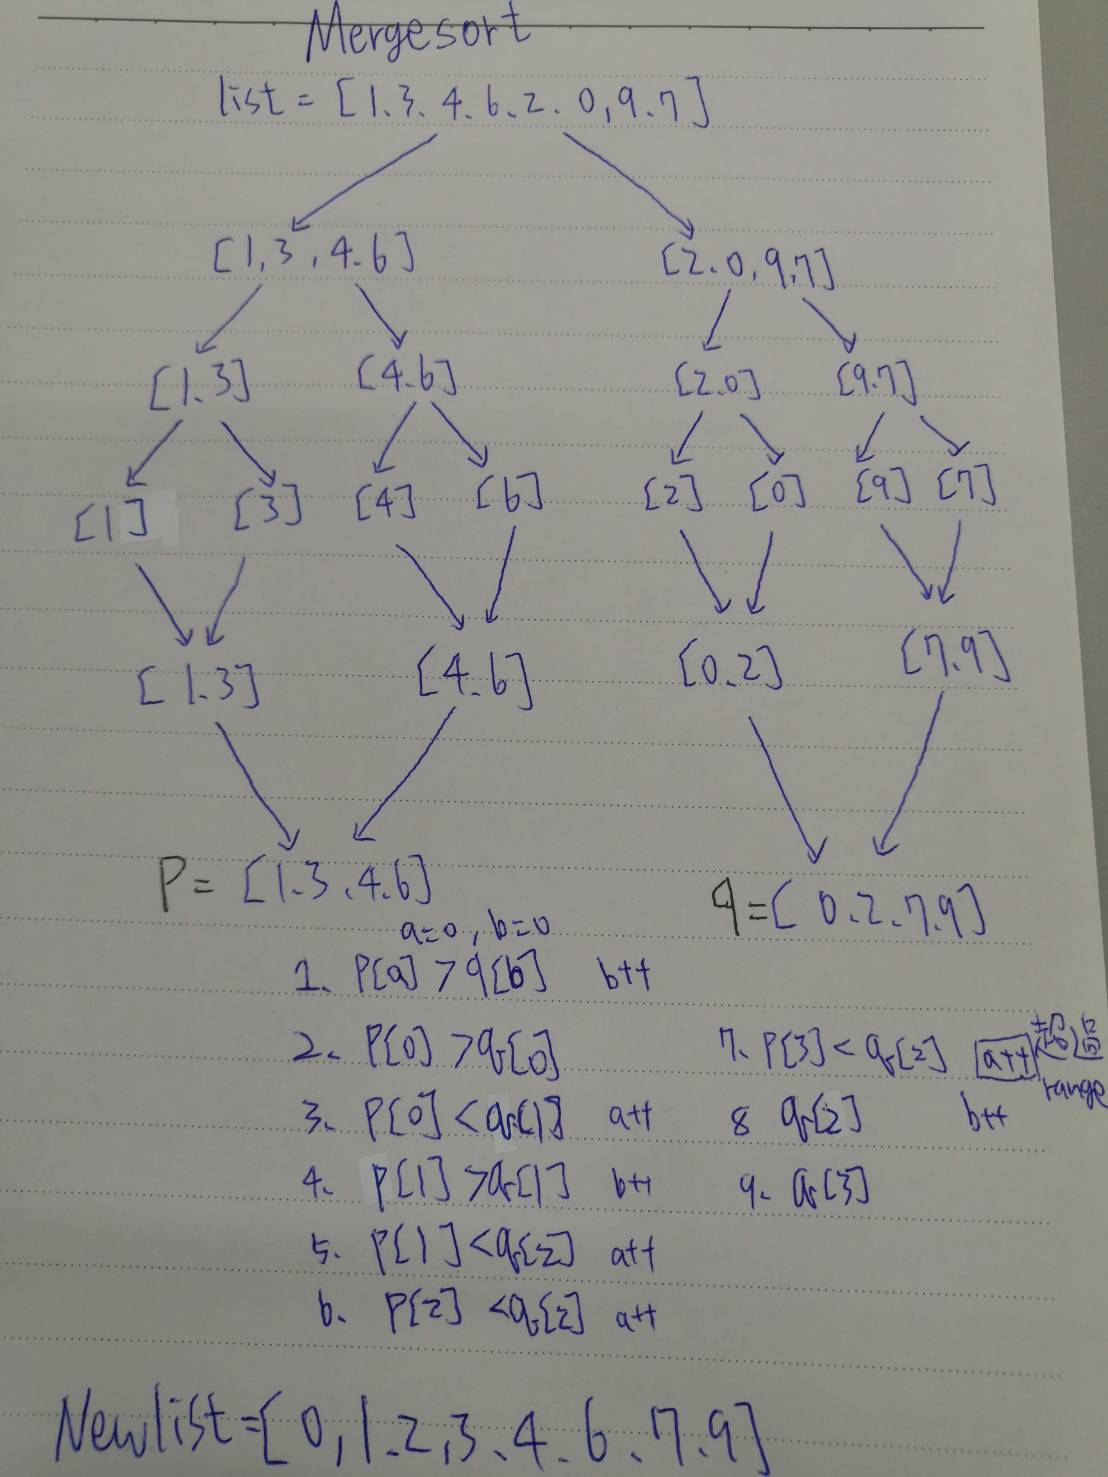 Mergesort
list = [1.3.4.6.2.0,9.7]
[1,3,4.6] [2.0,9,7]
[1.3] [4.6] [2.0] [9.7]
[1] [3] [4] [6] [2] [0] [9] [7]
[1.3] [4.6] [0.2] [7.9]
P = [1.3.4.6] q = [0.2.7.9]
a=0, b=0
1. P[a] > q[b] b++
2. P[0] > q[0]
3. P[0] < q[1] a++
4. P[1] > q[1] b++
5. P[1] < q[2] a++
6. P[2] < q[2] a++
7. P[3] < q[2] a++ 超過
range
8 q[2] b++
9. q[3]
Newlist = [0,1.2,3.4.6.7.9]